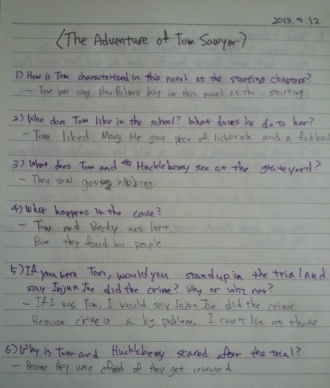 2013.9.12
(The Adventure of Tom Sawyer)
1) How is Tom characterized in this novel at the starting chapters?
- Tom was very playfulness boy in this novel at the starting.
2) Who does Tom like in the school? What does he do to her?
- Tom liked Mary. He gave piece of and a
3) What does Tom and Huckleberry see at the graveyard?
- They saw robbing.
4) What happens in the cave?
- Tom and Becky was lost.
But they found by people
5) If you were Tom, would you stand up in the trial and
say Injun Joe did the crime? Why or why not?
- If I was Tom, I would say Injun Joe did the crime
Because crime is a big problem. I can't lie at those
6) Why is Tom and Huckleberry scared after the trial?
- Because they were afraid of they get revenged